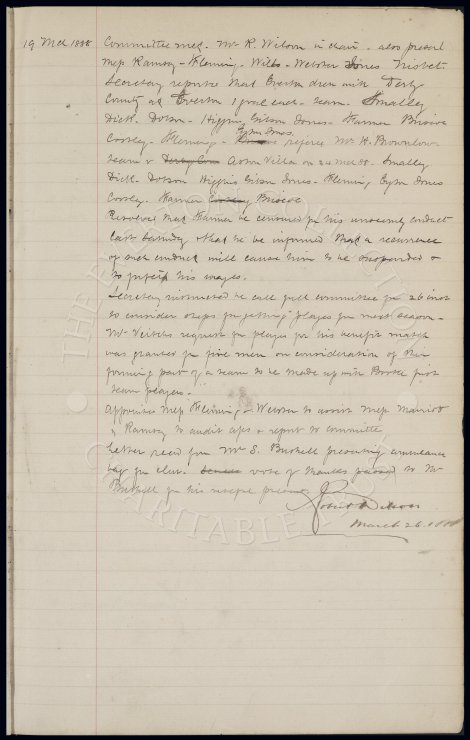 19 Mch 1888 Committee meetg. Mr R. Wilson in chair - also present
Mess Ramsay - Fleming - Wilts - Webster Jones Nisbet -
Secretary reported that Everton drew with Derby
County at Everton 1 goal each - team. Smalley
Dick. Dobson - Higgins, Gibson Jones - Farmer Briscoe
Cassley. Fleming - Izatt Jones. referee Mr H. Brownlow
team v Derby Coun Aston Villa on 24 March. Smalley
Dick - Dobson Higgins Gibson Jones - Fleming Izatt Jones
Cassley. Farmer Briscoe
Resolved that Farmer be censured for his unseemly conduct
last Saturday & that he be informed that a recurrence
of such conduct will cause him to be suspended &
to forfeit his wages.
Secretary instructed to call full committee for 26 inst
to consider steps for getting players for next season -
Mr request for players for his benefit match
was granted for five men on consideration of their
forming part of a team to be made up with Bootle first
team players.
Appointed Mess Fleming & Webster to assist Mess Marriott
& Ramsay to audit a/cs & report to committee
Letter read from Mr S. Bushell presenting ambulance
bag for club. vote of thanks passed to Mr
Bushell for his present
Robert Wilson
March 26. 1888
THE EVERTON COLLECTION
CHARITABLE TRUST